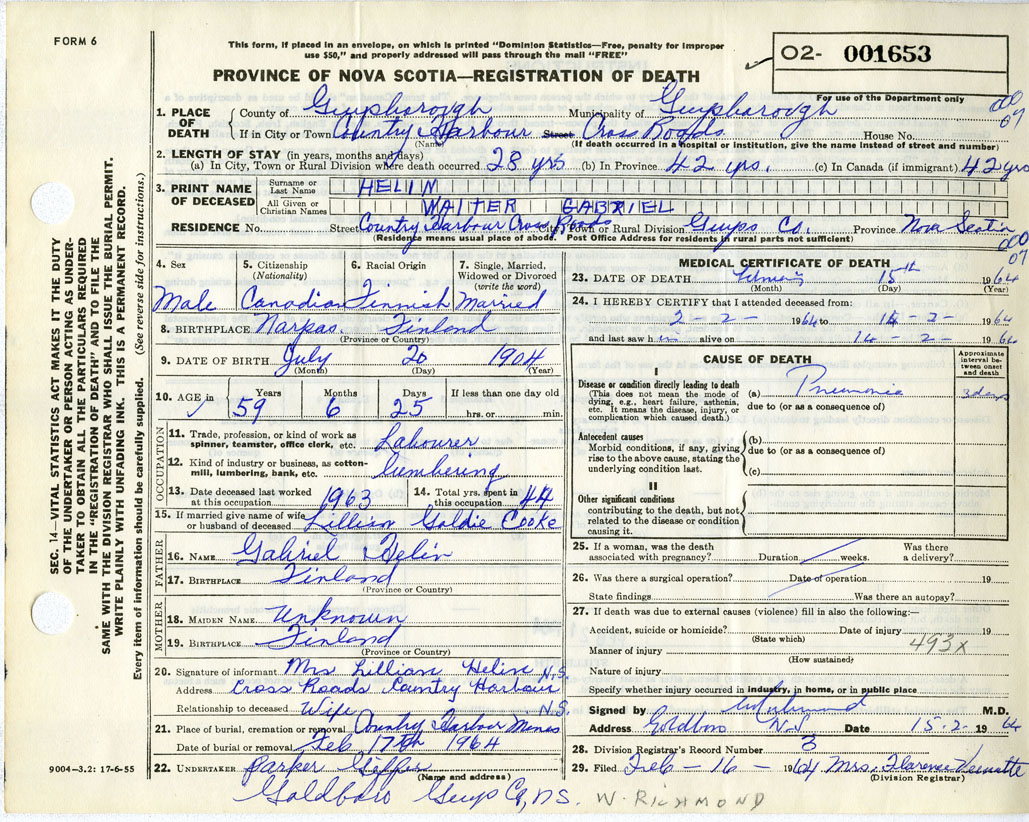 FORM 6
This form, if placed in an envelope, on which is printed "Dominion Statistics—Free, penalty for improper
use $50," and properly addressed will pass through the mail "FREE"
PROVINCE OF NOVA SCOTIA—REGISTRATION OF DEATH
O2- 001653
For use of the Department only
000
07
1. PLACE OF DEATH
County of Guysborough Municipality of Guysborough
If in City or Town Country Harbour Street Cross Roads House No.
(Name) (If death occurred in a hospital or institution, give the name instead of street and number)
2. LENGTH OF STAY (in years, months and days)
(a) In City, Town or Rural Division where death occurred 28 yrs (b) In Province 42 yrs. (c) In Canada (if immigrant) 42 yrs
3. PRINT NAME OF DECEASED
Surname or Last Name HELIN
All Given or Christian Names WALTER GABRIEL
RESIDENCE No. Street Country Harbour Cross Roads City, Town or Rural Division Guys Co. Province Nova Scotia
(Residence means usual place of abode. Post Office Address for residents in rural parts not sufficient)
000
07
4. Sex Male
5. Citizenship (Nationality) Canadian
6. Racial Origin Finnish
7. Single, Married, Widowed or Divorced (write the word) Married
8. BIRTHPLACE Narpas. Finland
(Province or Country)
9. DATE OF BIRTH July 20 1904
(Month) (Day) (Year)
10. AGE in Years 59 Months 6 Days 25 If less than one day old hrs. or min.
OCCUPATION
11. Trade, profession, or kind of work as spinner, teamster, office clerk, etc. Labourer
12. Kind of industry or business, as cotton-mill, lumbering, bank, etc. lumbering
13. Date deceased last worked at this occupation 1963
14. Total yrs. spent in this occupation 44
15. If married give name of wife or husband of deceased Lillian Goldie Cooke
FATHER
16. NAME Gabriel Helin
17. BIRTHPLACE Finland
(Province or Country)
MOTHER
18. MAIDEN NAME Unknown
19. BIRTHPLACE Finland
(Province or Country)
20. Signature of informant Mrs Lillian Helin N.S.
Address Cross Roads Country Harbour
Relationship to deceased Wife N.S.
21. Place of burial, cremation or removal Country Harbour Mines
Date of burial or removal Feb 17th 1964
22. UNDERTAKER Parker Giffin
(Name and address)
Goldboro Guys Co, NS. W. RICHMOND
MEDICAL CERTIFICATE OF DEATH
23. DATE OF DEATH 15th 1964
(Month) (Day) (Year)
24. I HEREBY CERTIFY that I attended deceased from:
2 - 2 - 1964 to 14 - 2 - 1964
and last saw him alive on 14 - 2 - 1964
CAUSE OF DEATH
Approximate interval between onset and death
I
Disease or condition directly leading to death
(This does not mean the mode of dying, e.g., heart failure, asthenia, etc. It means the disease, injury, or complication which caused death.)
(a) Pneumonia 3 days
due to (or as a consequence of)
Antecedent causes
Morbid conditions, if any, giving rise to the above cause, stating the underlying condition last.
(b)
due to (or as a consequence of)
(c)
II
Other significant conditions
contributing to the death, but not related to the disease or condition causing it.
25. If a woman, was the death associated with pregnancy? Duration weeks. Was there a delivery?
26. Was there a surgical operation? Date of operation 19
State findings Was there an autopsy?
27. If death was due to external causes (violence) fill in also the following:—
Accident, suicide or homicide? Date of injury 19
(State which)
493x
Manner of injury
(How sustained)
Nature of injury
Specify whether injury occurred in industry, in home, or in public place
Signed by M.D.
Address Goldboro N.S Date 15.2. 1964
28. Division Registrar's Record Number 3
29. Filed Feb - 16 - 1964 Mrs. Florence
(Division Registrar)
SEC. 14—VITAL STATISTICS ACT MAKES IT THE DUTY
OF THE UNDERTAKER OR PERSON ACTING AS UNDER-
TAKER TO OBTAIN ALL THE PARTICULARS REQUIRED
IN THE "REGISTRATION OF DEATH" AND TO FILE THE
SAME WITH THE DIVISION REGISTRAR WHO SHALL ISSUE THE BURIAL PERMIT.
WRITE PLAINLY WITH UNFADING INK. THIS IS A PERMANENT RECORD.
Every item of information should be carefully supplied. (See reverse side for instructions.)
9004—3.2: 17-6-55